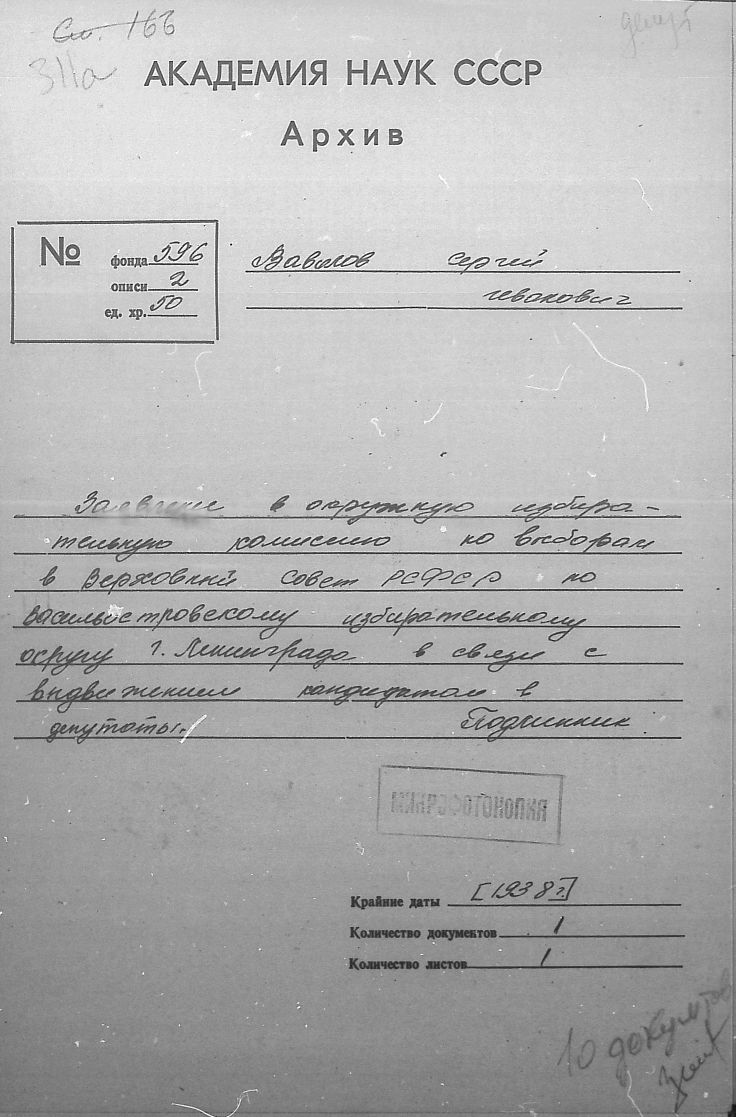 166
311а
АКАДЕМИЯ НАУК СССР
Архив
№
фонда 596
описи 2
ед. хр. 50
Вавилов Сергей
Иванович
Заявление в окружную избира-
тельную комиссию по выборам
в Верховный Совет РСФСР по
Василеостровскому избирательному
округу г. Ленинграда в связи с
выдвижением кандидатом в
депутаты. Подлинник
Крайние даты [1938 г.]
Количество документов 1
Количество листов 1
10